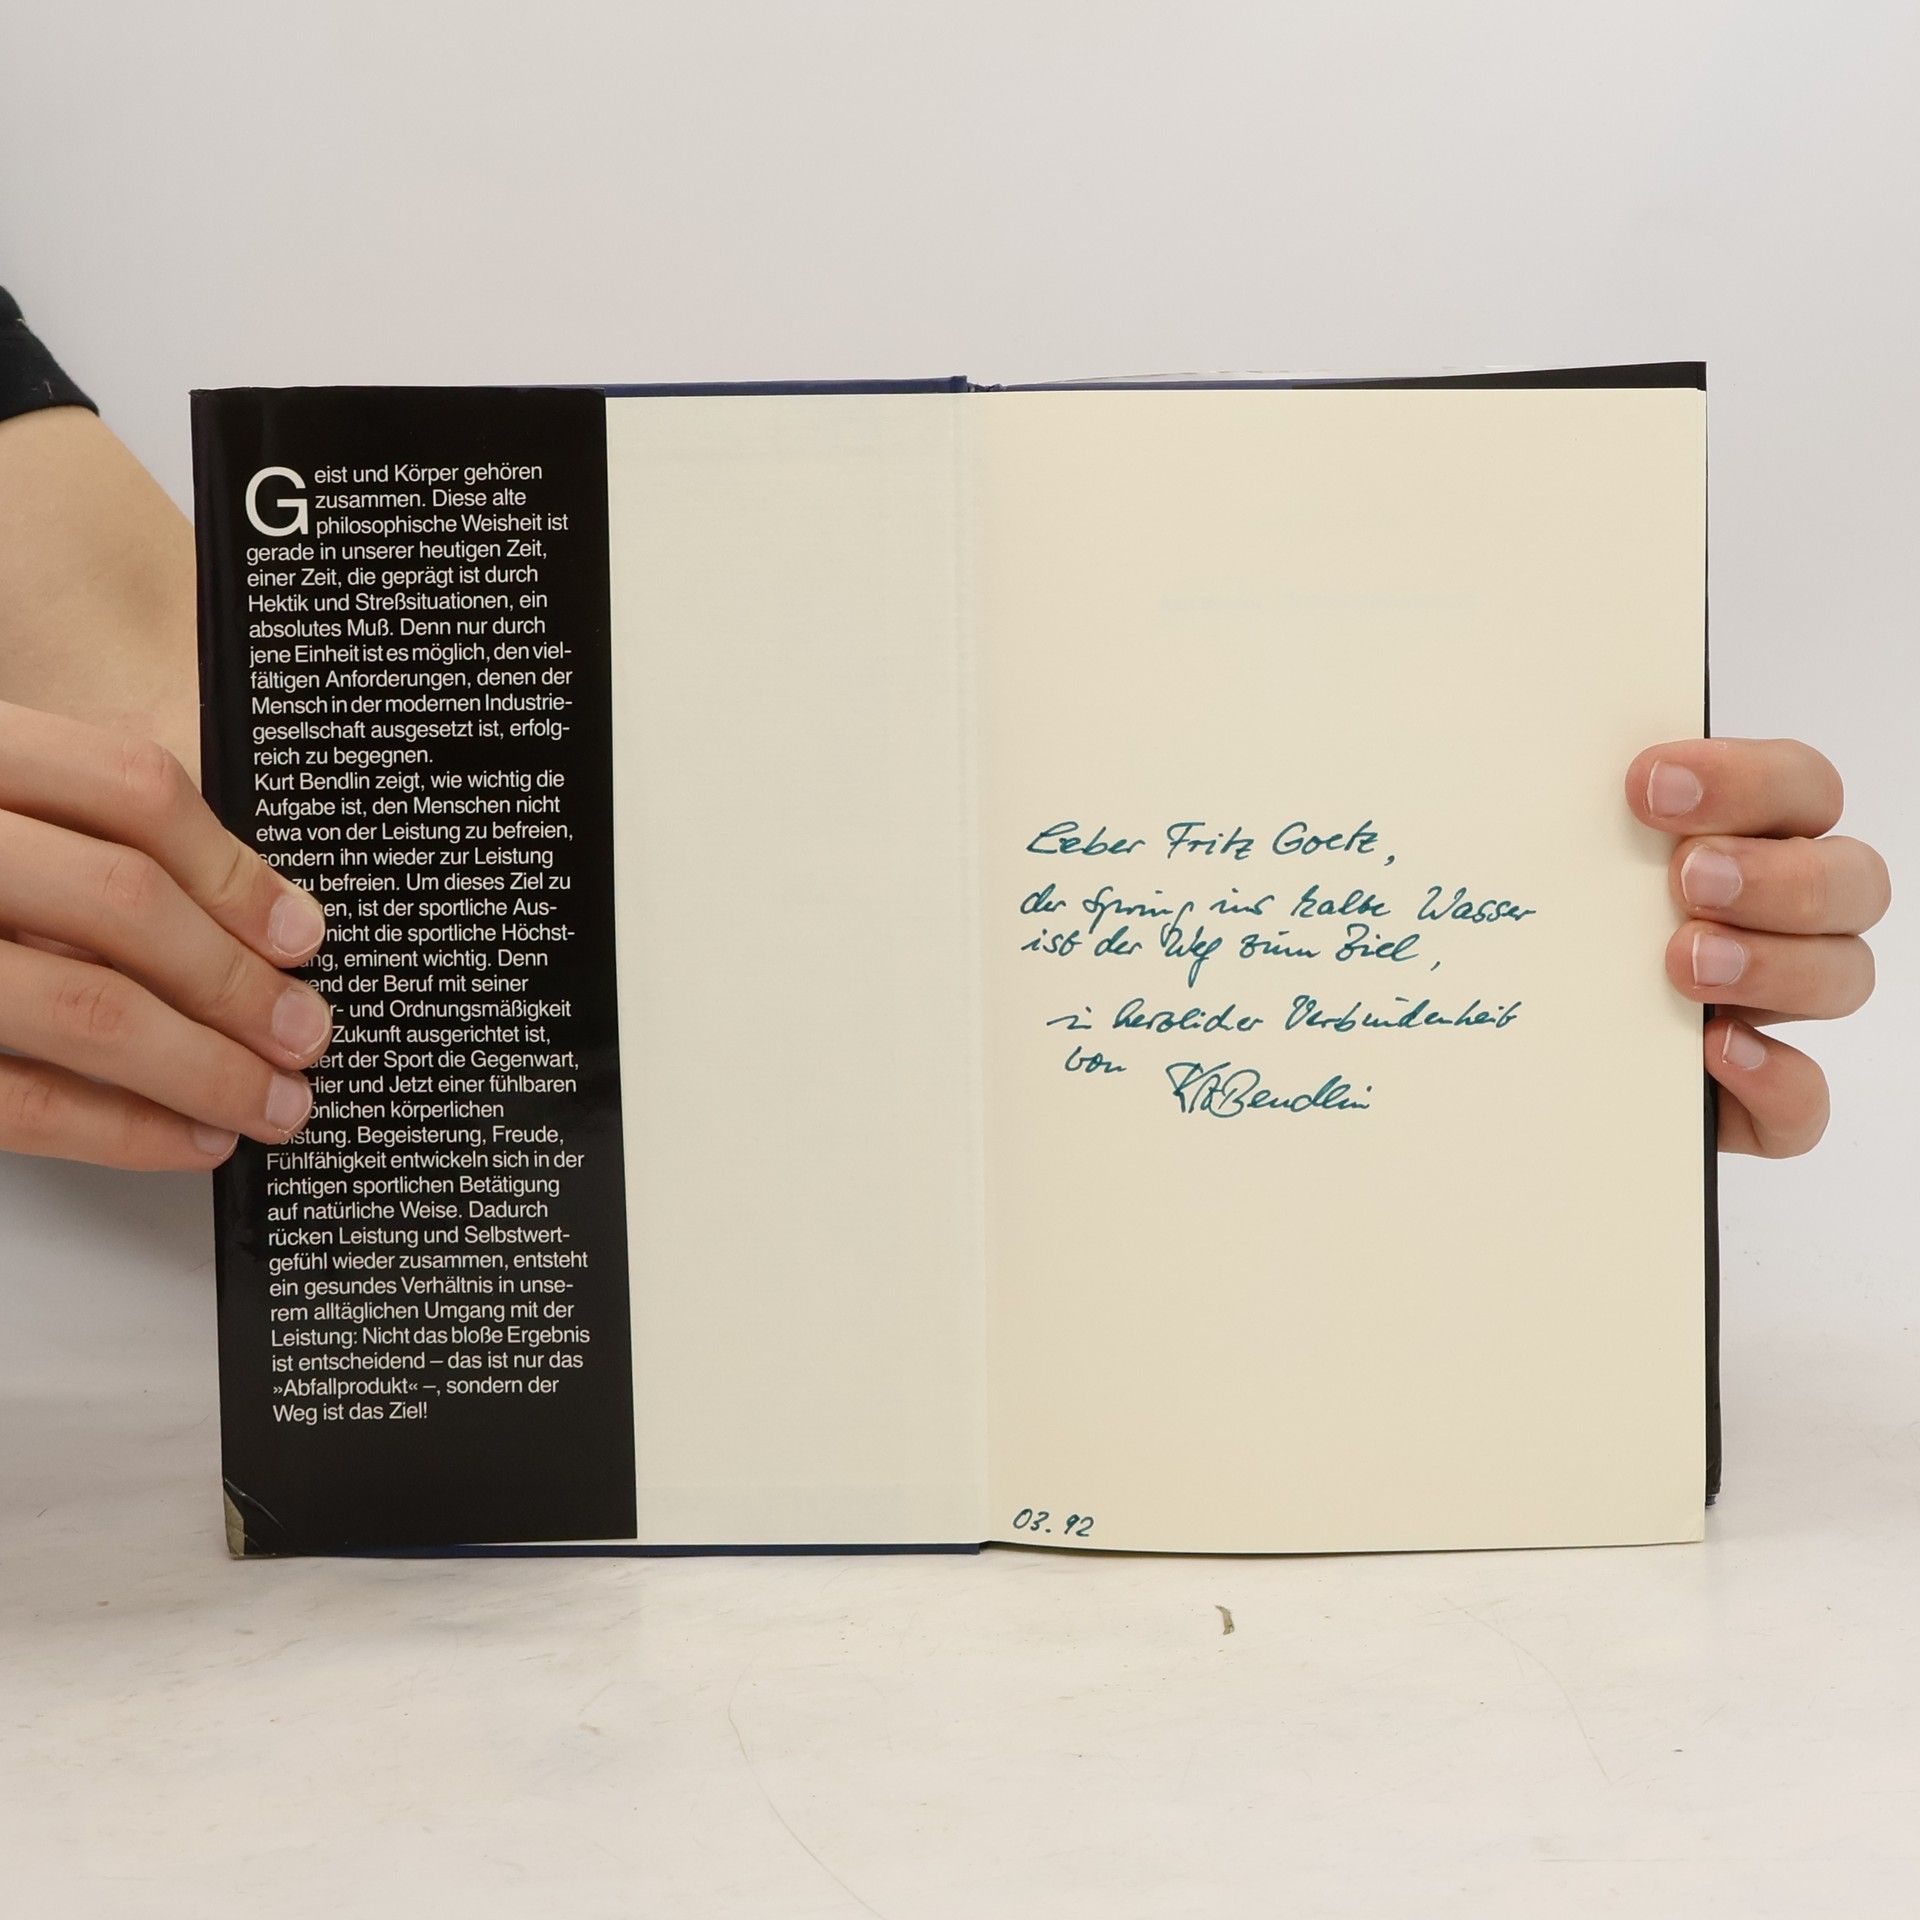 Geist und Körper gehören
zusammen. Diese alte
philosophische Weisheit ist
gerade in unserer heutigen Zeit,
einer Zeit, die geprägt ist durch
Hektik und Streßsituationen, ein
absolutes Muß. Denn nur durch
jene Einheit ist es möglich, den viel-
fältigen Anforderungen, denen der
Mensch in der modernen Industrie-
gesellschaft ausgesetzt ist, erfolg-
reich zu begegnen.
Kurt Bendlin zeigt, wie wichtig die
Aufgabe ist, den Menschen nicht
etwa von der Leistung zu befreien,
sondern ihn wieder zur Leistung
zu befreien. Um dieses Ziel zu
en, ist der sportliche Aus-
nicht die sportliche Höchst-
ng, eminent wichtig. Denn
end der Beruf mit seiner
r- und Ordnungsmäßigkeit
Zukunft ausgerichtet ist,
ert der Sport die Gegenwart,
Hier und Jetzt einer fühlbaren
önlichen körperlichen
istung. Begeisterung, Freude,
Fühlfähigkeit entwickeln sich in der
richtigen sportlichen Betätigung
auf natürliche Weise. Dadurch
rücken Leistung und Selbstwert-
gefühl wieder zusammen, entsteht
ein gesundes Verhältnis in unse-
rem alltäglichen Umgang mit der
Leistung: Nicht das bloße Ergebnis
ist entscheidend – das ist nur das
»Abfallprodukt« –, sondern der
Weg ist das Ziel!
Lieber Fritz Goetz,
der Sprung ins kalte Wasser
ist der Weg zum Ziel,
in herzlicher Verbundenheit
von
Kurt Bendlin
03.92